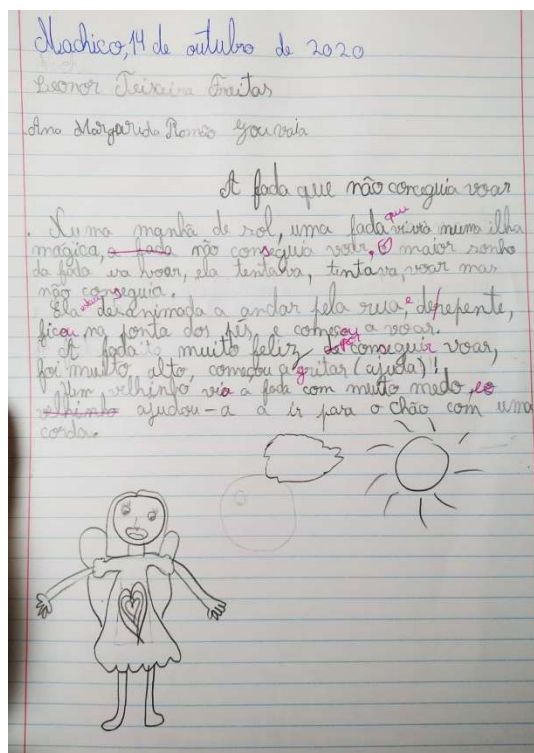 Machico, 14 de outubro de 2020
Leonor Teixeira Freitas
Ana Margarida Romão Gouveia
A fada que não conceguia voar
Numa manhã de sol, uma fada que vivia numa ilha
magica, a fada não conseguia voar, O maior sonho
da fada era voar, ela tentava, tentava, voar mas
não conseguia.
Ela desanimada a andar pela rua, e de repente,
ficou na ponta dos pés, e começou a voar.
A fada muito feliz por conseguir voar,
foi muito alto, começou a gritar (ajuda)!
Um velhinho via a fada com muito medo, e o
velhinho ajudou-a a ir para o chão com uma
corda.